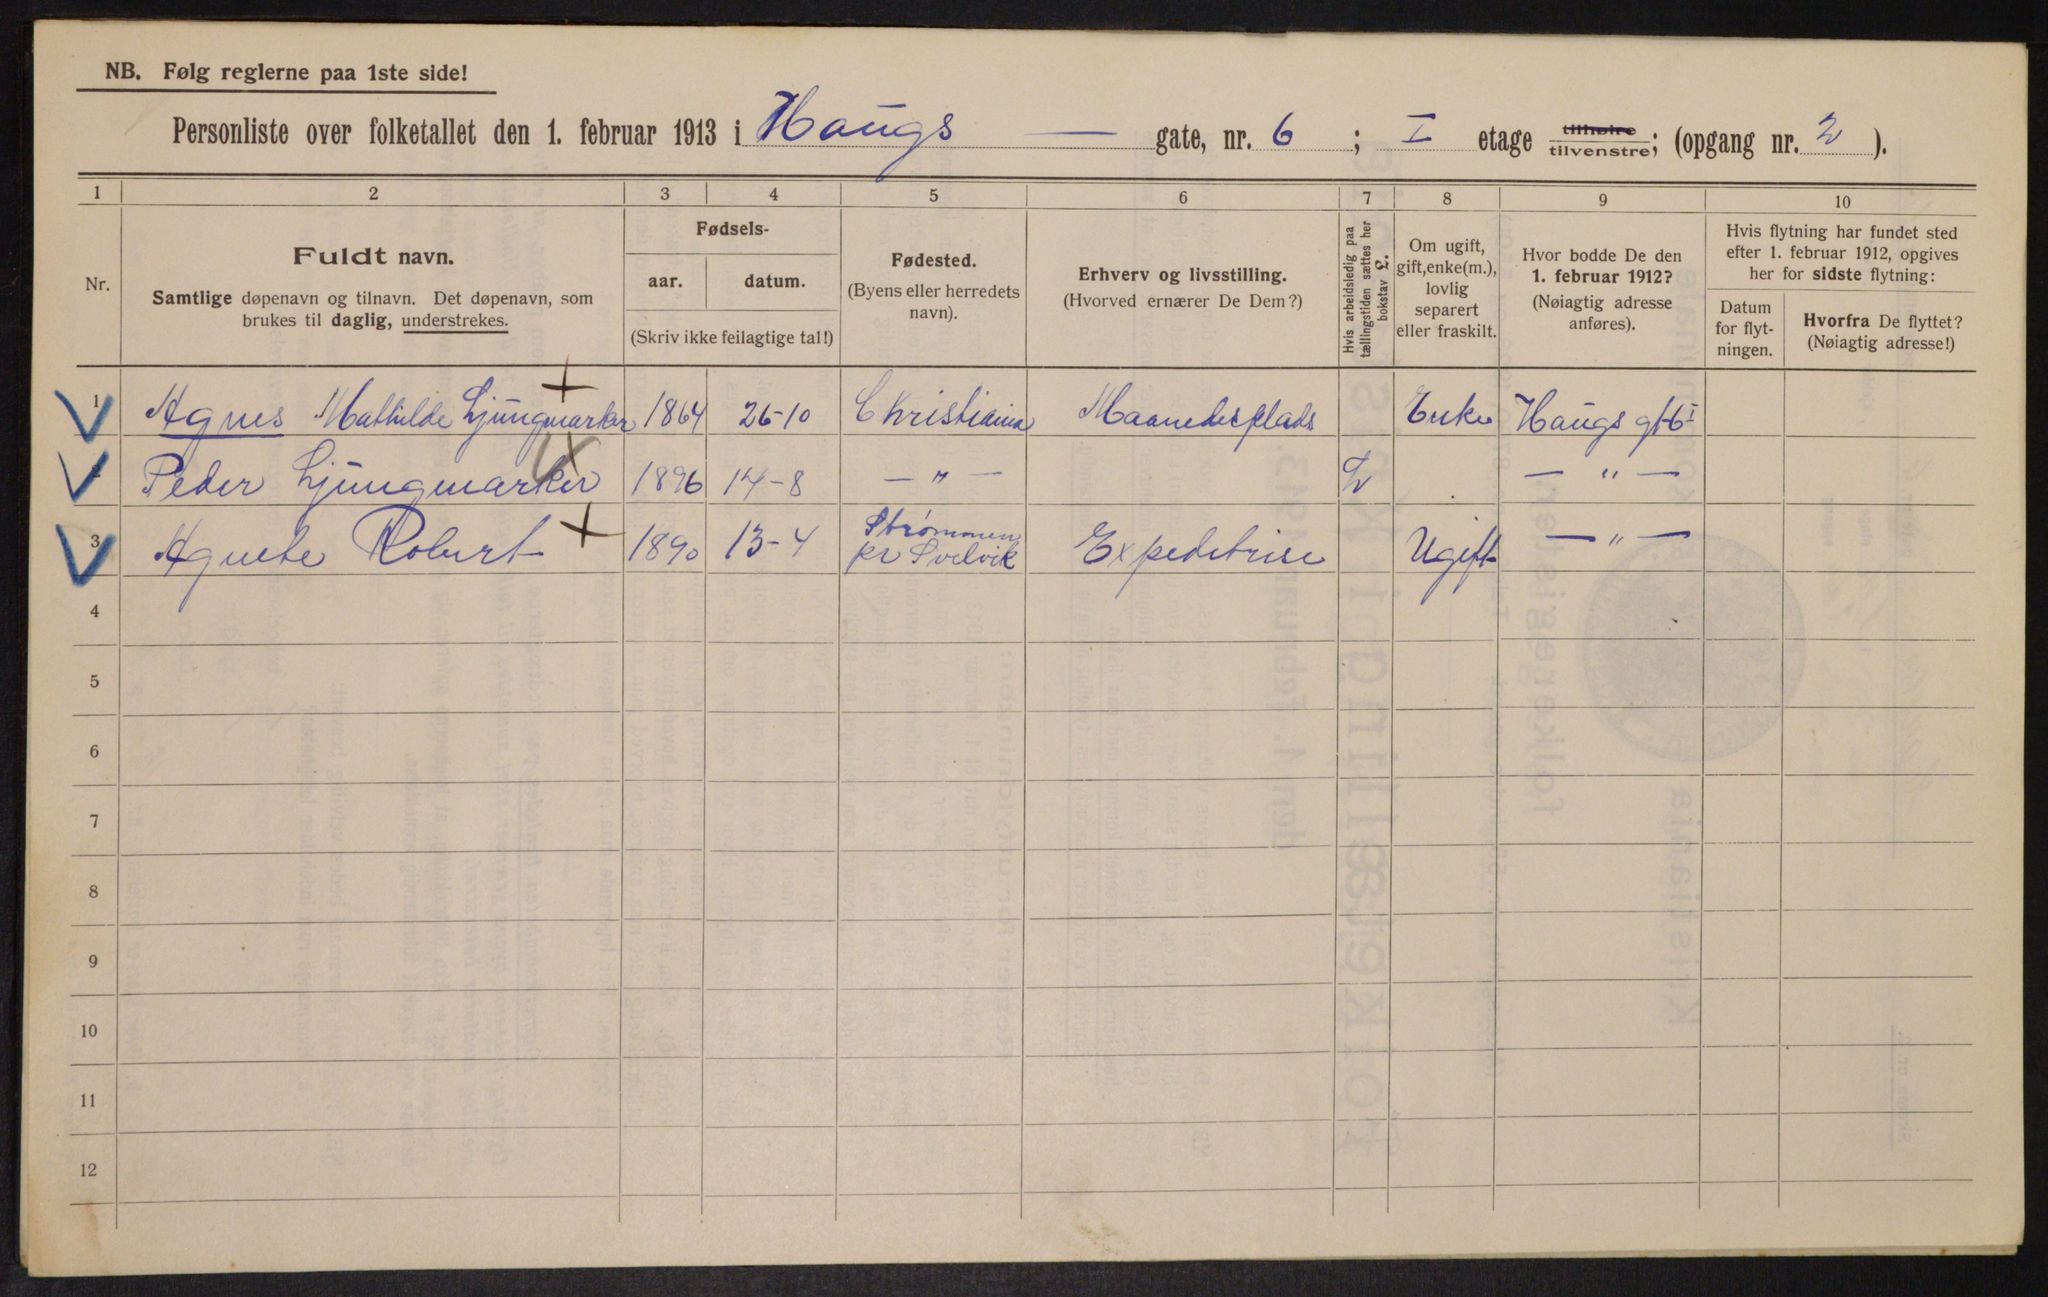 NB. Følg reglerne paa 1ste side!
Personliste over folketallet den 1. februar 1913 i Haugs — gate, nr. 6 ; I etage tilhøire tilvenstre; (opgang nr. 2 ).
1 2 3 4 5 6 7 8 9 10
Nr.
Fuldt navn.
Samtlige døpenavn og tilnavn. Det døpenavn, som
brukes til daglig, understrekes.
Fødsels-
aar. datum.
(Skriv ikke feilagtige tal!)
Fødested.
(Byens eller herredets
navn).
Erhverv og livsstilling.
(Hvorved ernærer De Dem?)
Hvis arbeidsledig paa
tællingstiden sættes her
bokstav £.
Om ugift,
gift, enke(m.),
lovlig
separert
eller fraskilt.
Hvor bodde De den
1. februar 1912?
(Nøiagtig adresse
anføres).
Hvis flytning har fundet sted
efter 1. februar 1912, opgives
her for sidste flytning:
Datum
for flyt-
ningen.
Hvorfra De flyttet?
(Nøiagtig adresse!)
1 Agnes Mathilde Ljungmarker 1864 26-10 Christiania Maanedsplads Enke Haugs gt 6 I
Peder Ljungmarker 1896 14-8 — " — L — " —
3 Agnete Robert 1890 13-4 Strømmen pr Svelvik Expeditrise Ugift — " —
4
5
6
7
8
9
10
11
12